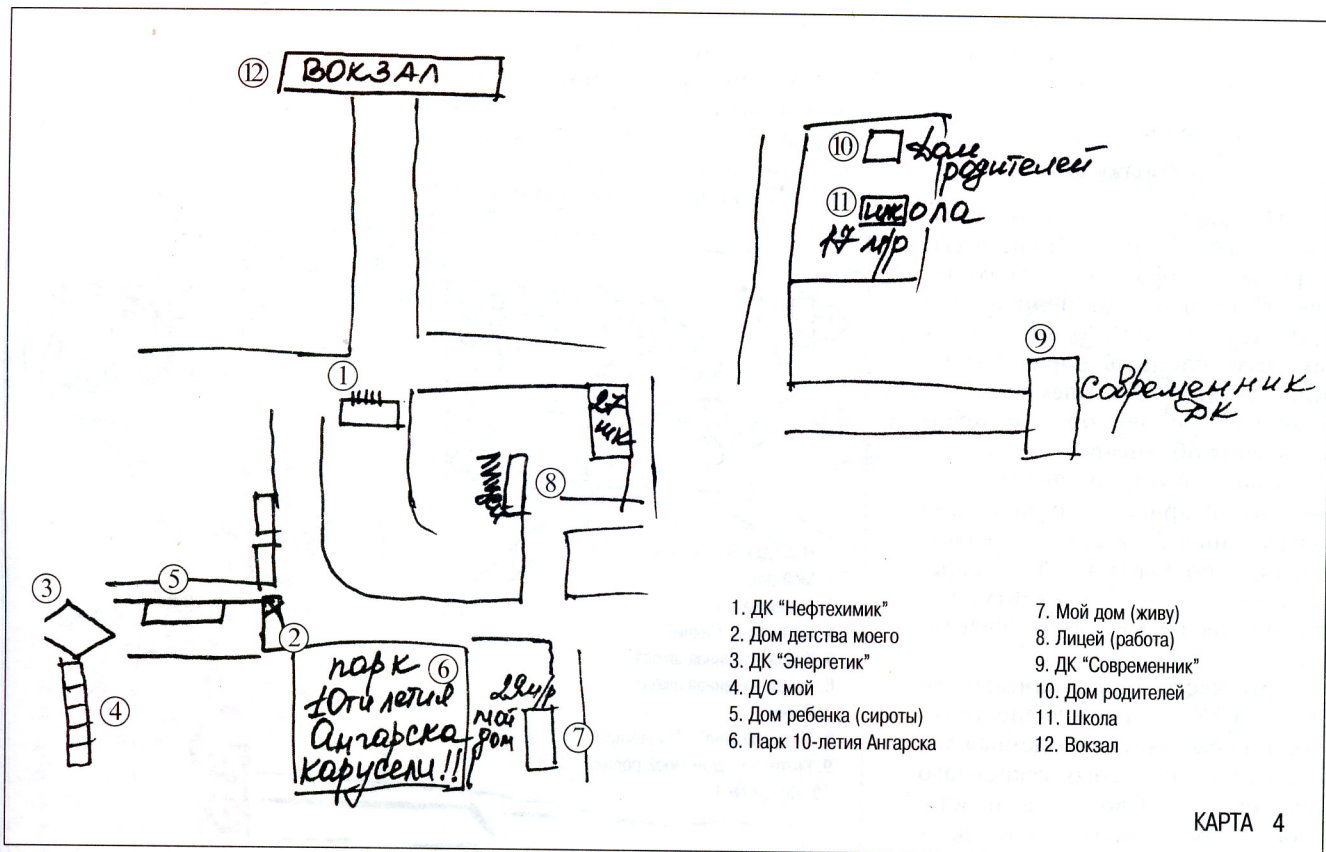 ⑫ ВОКЗАЛ
⑩ Дом
родителей
⑪ школа
17 м/р
⑨
Современник
ДК
①
27
шк
⑧
③
⑤
②
④
парк ⑥
10ти летия
Ангарска
карусели!!
29 м/р
мой
дом
⑦
1. ДК “Нефтехимик”
2. Дом детства моего
3. ДК “Энергетик”
4. Д/С мой
5. Дом ребенка (сироты)
6. Парк 10-летия Ангарска
7. Мой дом (живу)
8. Лицей (работа)
9. ДК “Современник”
10. Дом родителей
11. Школа
12. Вокзал
КАРТА 4